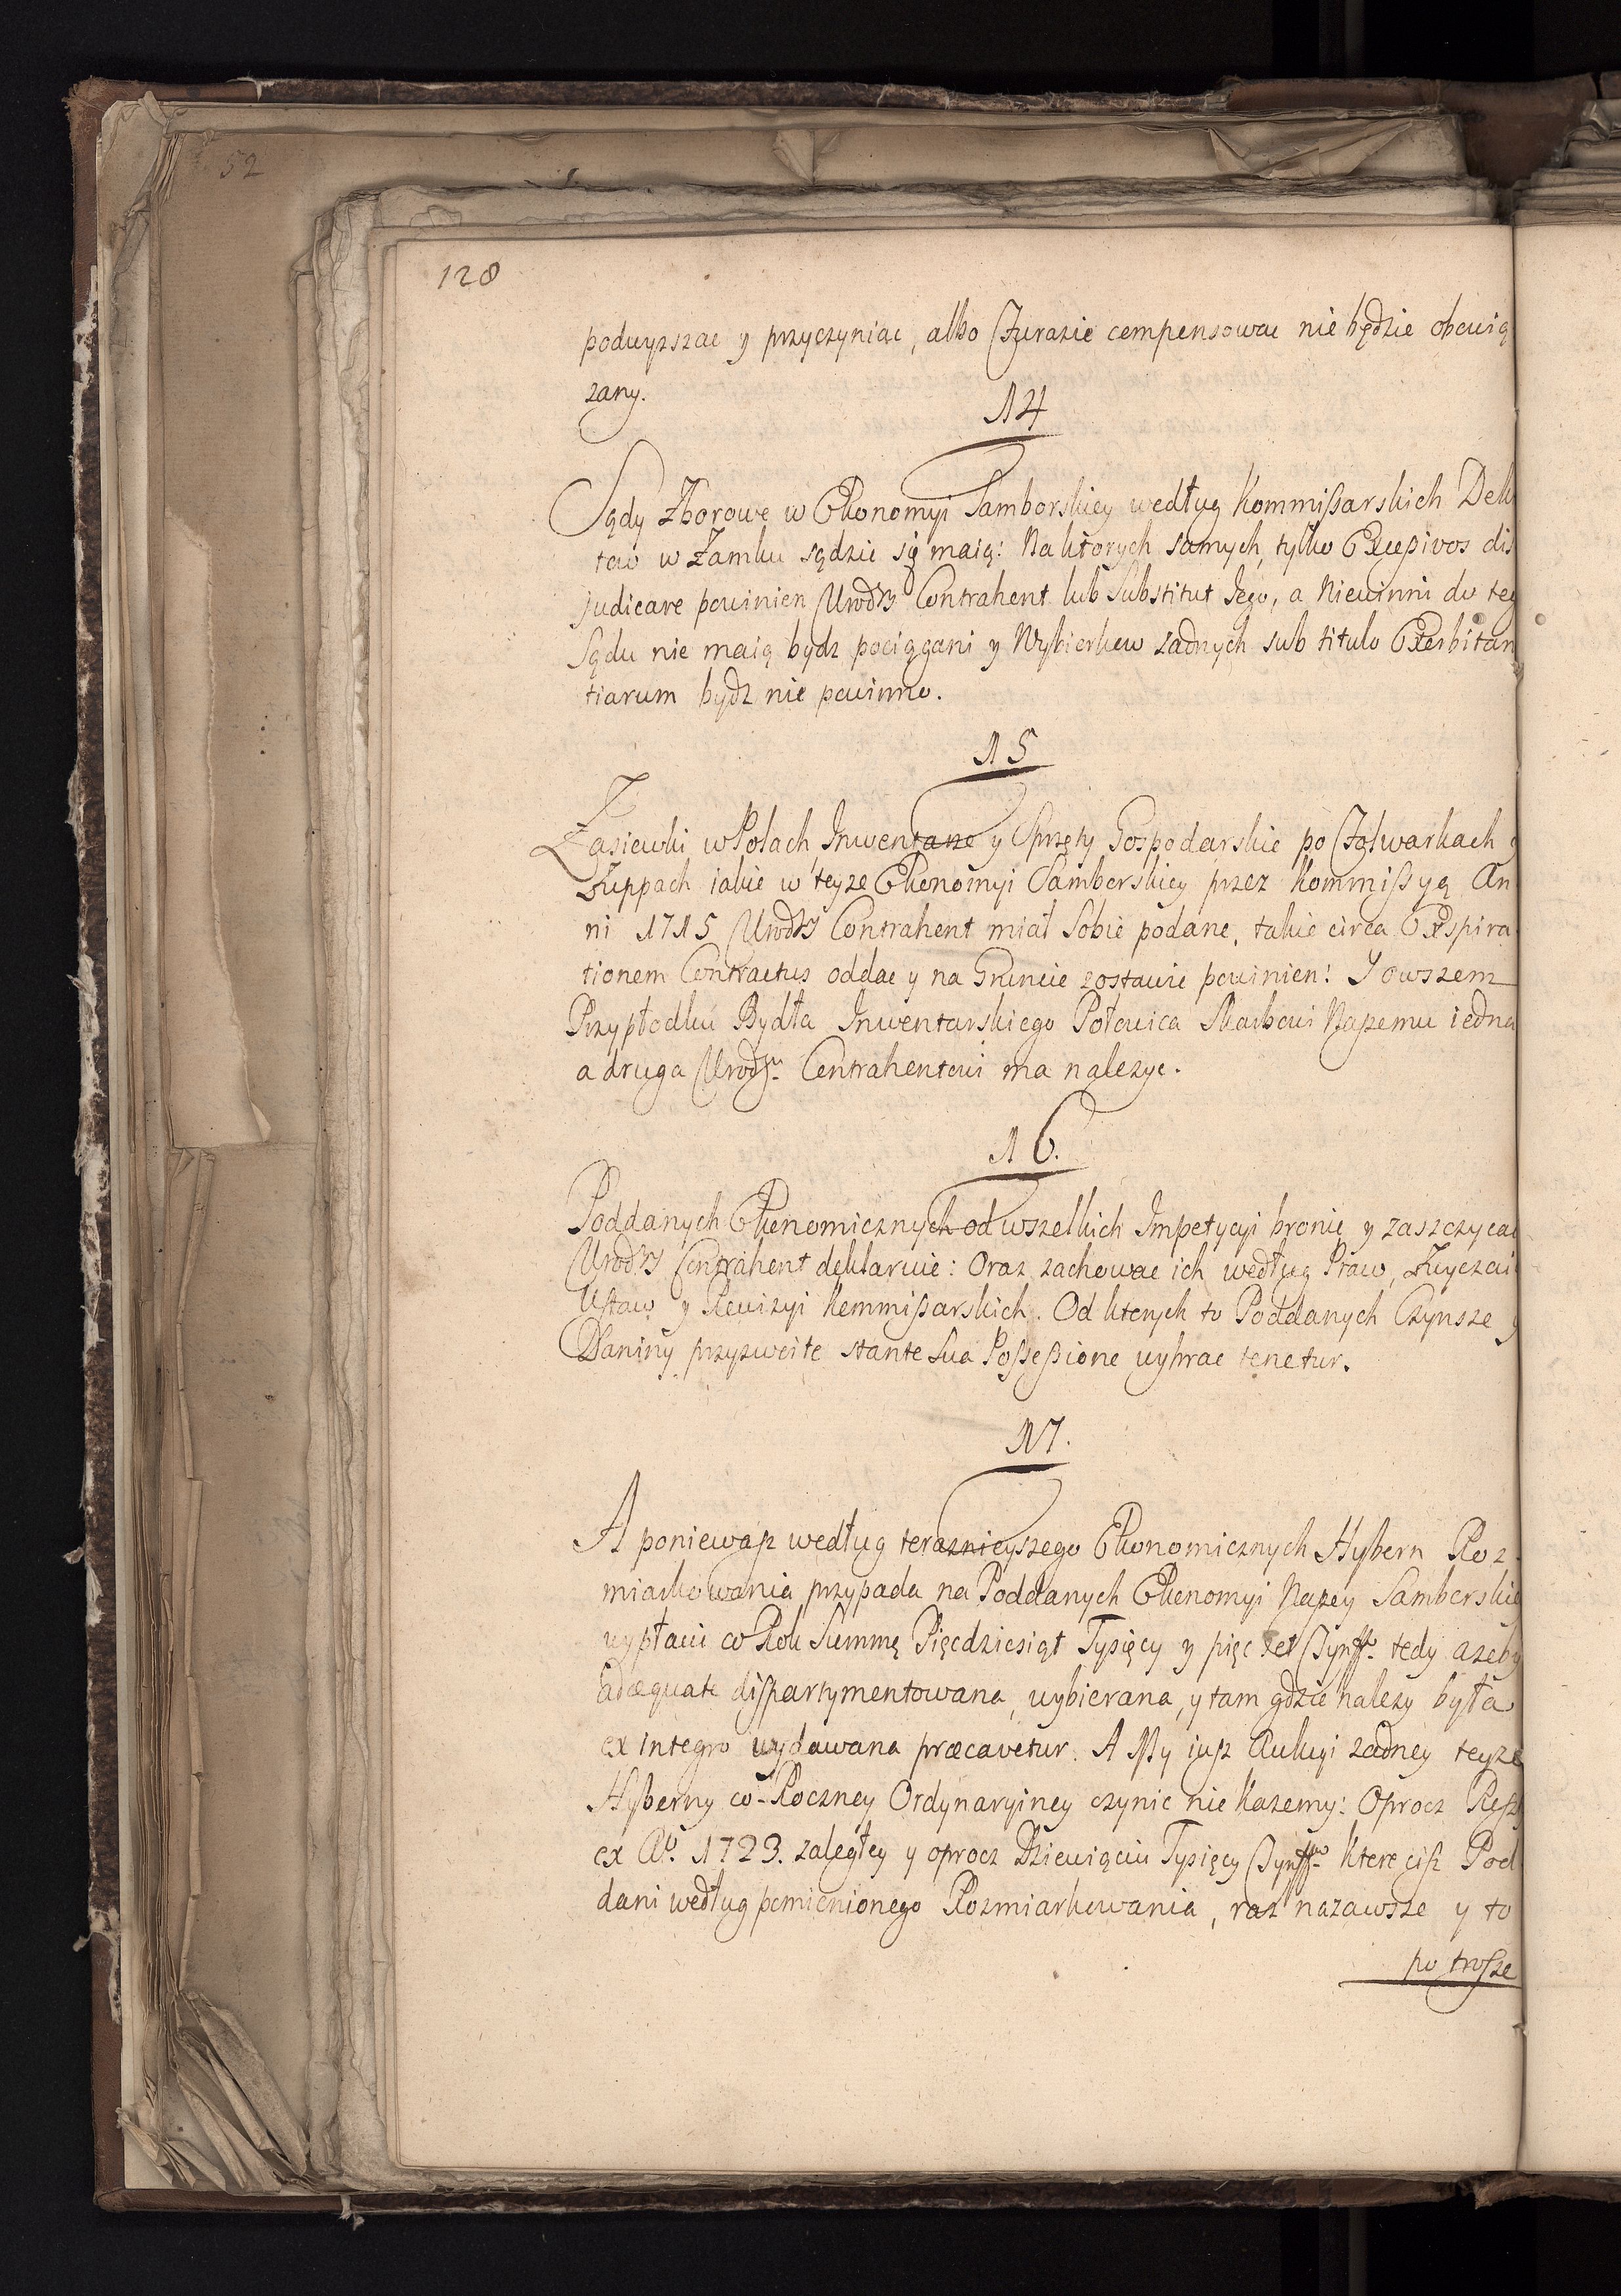 52
128
podwyzszac y przyczyniac, albo Czurazie compensowac nie będzie obowią
zany.
14
Sądy Zborowe w Ekonomyi Samborskiey według Kommißarskich Dek
tow w Zamku sądzic się maią: Na ktorych samych, tylko Excessivos dis
judicare powinien Urodzy Contrahent lub Substitut Iego, a Niewinni do teg
Sądu nie maią bydz pociągani y Wybierkow zadnych sub titulo Exorbitan
tiarum bydz nie powinno.
15
Zasiewki w Polach Inwentarze y Sprzęty Gospodarskie po Folwarkach y
Zuppach iakie w teyze Ekonomyi Samborskiey przez Kommißyą An
ni 1715 Urodzy Contrahent miał Sobie podane, takie circa Exspira
tionem Contractus oddac y na Gruncie zostawic powinien: Y owszem
Przypłodku Bydła Inwentarskiego Połowica Skarbowi Naszemu iedna
a druga Urodzu Contrahentowi ma nalezyc.
16.
Poddanych Ekonomicznych od wszelkich Impetycyi bronic y zaszczycac
Urodzy Contrahent deklaruie: Oraz zachowac ich według Praw, Zwyczai
Ustaw y Rewizyi Kommißarskich. Od ktorych to Poddanych Czynsze y
Daniny przyzwoite stante Sua Poßeßione wybrac tenetur.
17.
A poniewasz według teraznieyszego Ekonomicznych Hybern Roz-
miarkowania przypada na Poddanych Ekonomyi Naszey Samborskie
wypłacic co Rok Summę Pięcdziesiąt Tysięcy y pięc set Tynffw tedy azeby
adæquate dispartymentowana, wybierana, y tam gdzie nalezy była
ex integro wydawana præcavetur. A My iusz Aukcyi zadney teyze
Hyberny co-Roczney Ordynaryiney czynic nie kazemy: Oprocz Resz
ex Ao. 1723. zaległey y oprocz Dziewiąciu Tysięcy Tynffw ktore cisz Pod
dani według pomienionego Rozmiarkowania, raz nazawsze y to
po trosze